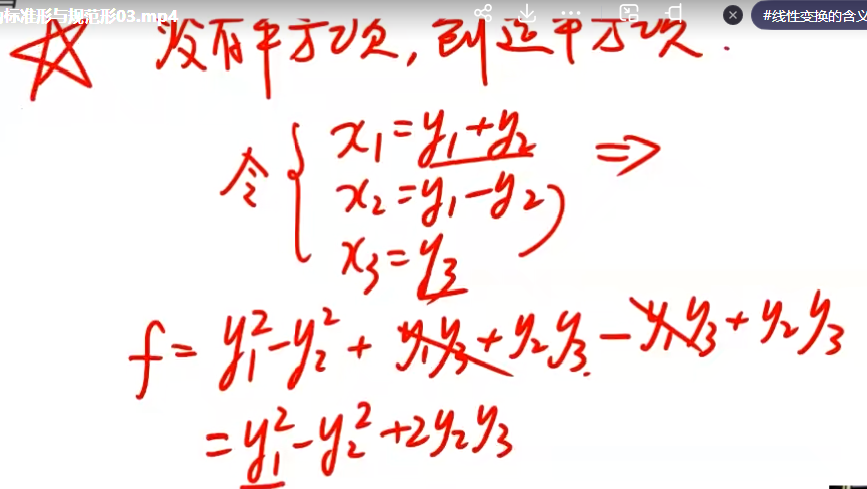 标准形与规范形03.mp4
#线性变换的含义
没有平方项, 创造平方项.
令 { x₁=y₁+y₂ ⇒
x₂=y₁-y₂
x₃=y₃
f= y₁²-y₂²+y₁y₃+y₂y₃-y₁y₃+y₂y₃
=y₁²-y₂²+2y₂y₃